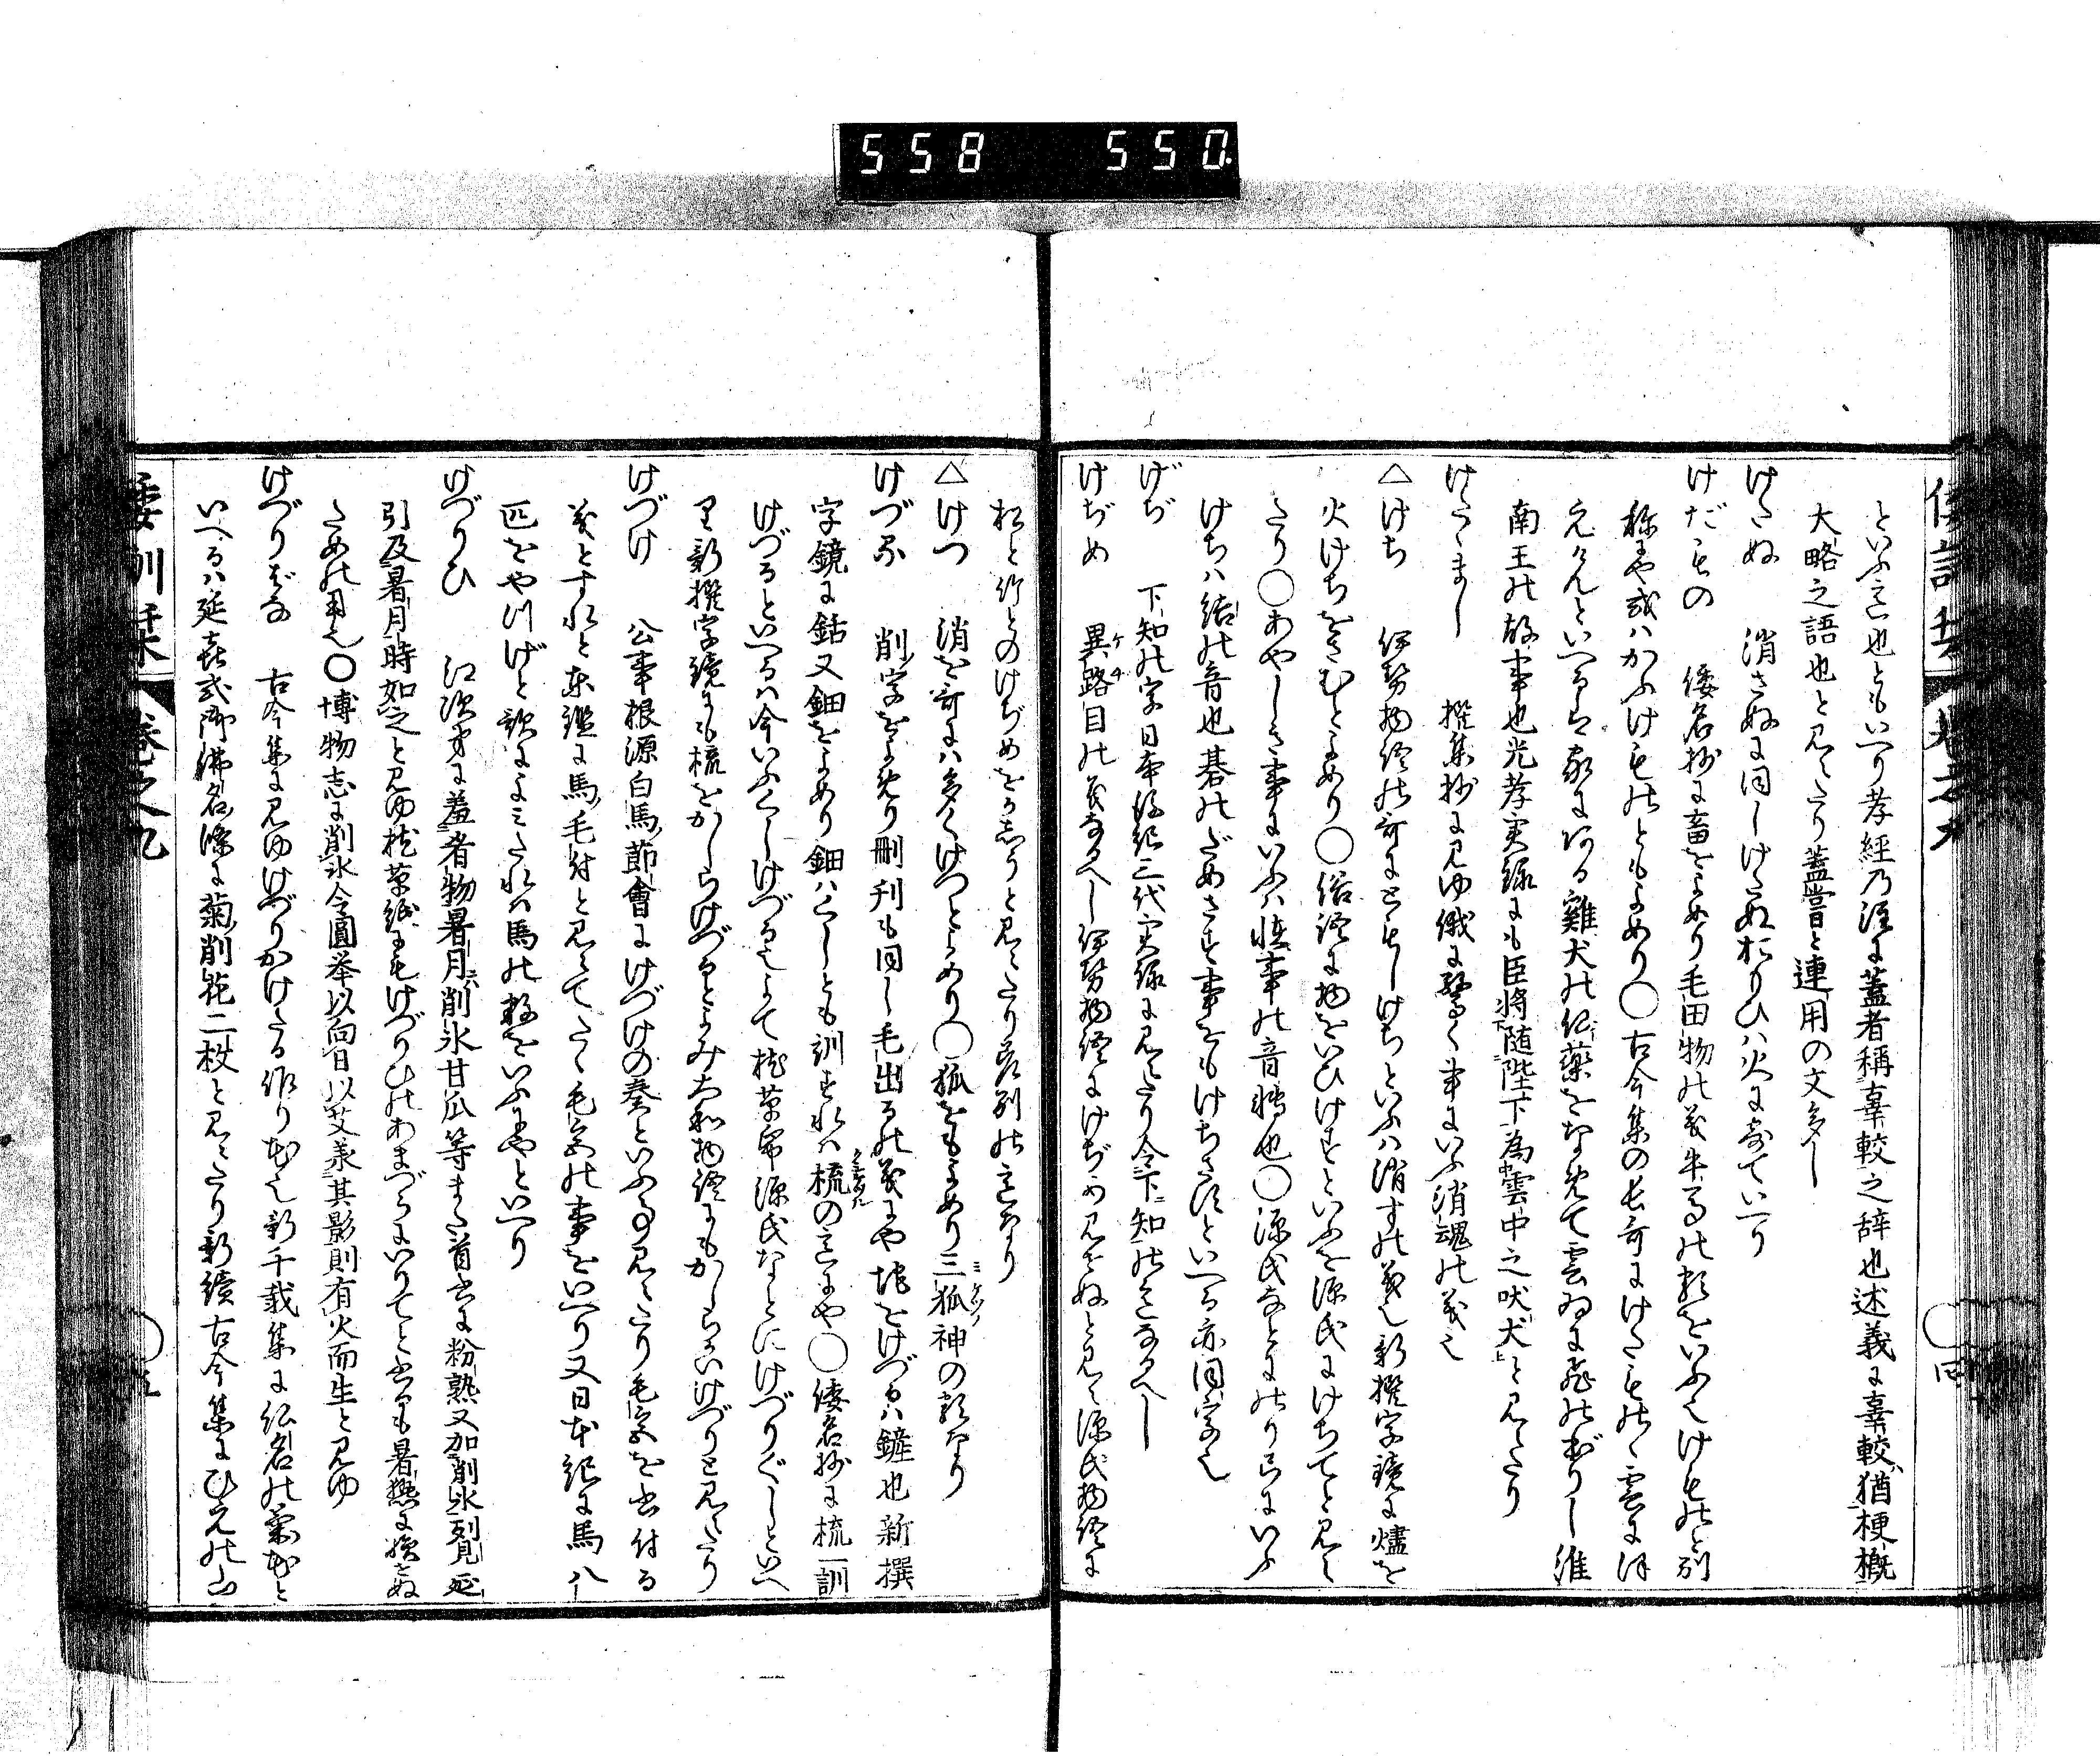 558 550
といふ意也ともいへり孝経乃注に蓋者稱辜較之辞也述義に辜較猶梗概
大略之語也と見えたり蓋嘗と連用の文多し
けたぬ 消さぬに同しけたぬおりひハ火に寄ていへり
けだもの 倭名抄に畜をよめり毛田物の義牛馬の類をいふ也けものと別
称にや或ハかふけものともよめり○古今集の長哥にけたものゝ雲にほ
えけんといへるは家にある雞犬の仙薬をなめて雲ゐに飛のぼりし淮
南王の故事也光孝実録にも臣将随陛下為雲中之吠犬と見えたり
けたゝまし 撰集抄に見ゆ俄に驚く事にいふ消魂の義也
△けち 伊勢物語の哥にともしけちといふハ消すの義也新撰字鏡に燼を
火けちをきむとよめり○俗語に物をいひけすといふを源氏にけちてと見え
たり○あやしき事にいふハ恠事の音転也○源氏などにのりらにいふ
けちハ結の音也碁のだめさす事をもけちさすといへる亦同字也
げぢ 下知の字日本後紀三代実録に見えたり今下知の意なるべし
けぢめ 異路目の義なるべし伊勢物語にけぢめ見せぬと見え源氏物語に
松と竹とのけぢめをと見えたり差別の意なり
△けつ 消を哥にハ多くけつとよめり○狐をもよめり三狐神の類なり
けづる 削字をよめり刪刊も同し毛出るの義にや地をけづるハ鏟也新撰
字鏡に鈷又鈿をよめり鈿ハくしとも訓すれハ梳の意にや○倭名抄に梳訓
けづるといへるハ今いふくしけづる也よて枕草帋源氏なとにけづりぐしといへ
り新撰字鏡にも梳をかしらけづるとよみ大和物語にもかしらかいけづりと見えたり
けづけ 公事根源白馬節會にけづけの奏といふ事見えたり毛字を書付る
義とすれと東鑑に馬毛付と見えてたゝ毛色の事をいへり又日本紀に馬八
匹をやつげと訓によみたれハ馬の数をいふにやといへり
けづりひ 江次第に羞者物暑月削氷甘瓜等また首書に粉熟又加削氷列見延
引及暑月時如之と見ゆ枕草紙にもけづりひのあまづらにいりてと書るも暑熱に堪ぬ
ための用也○博物志に削氷令圓举以向日以艾承其影則有火而生と見ゆ
けづりばな 古今集に見ゆけづりかけたる作り花也新千載集に仏名の菊花と
いへるハ延喜式御佛名條に菊削花二枚と見えたり新續古今集にひえの山
倭訓栞 巻之九